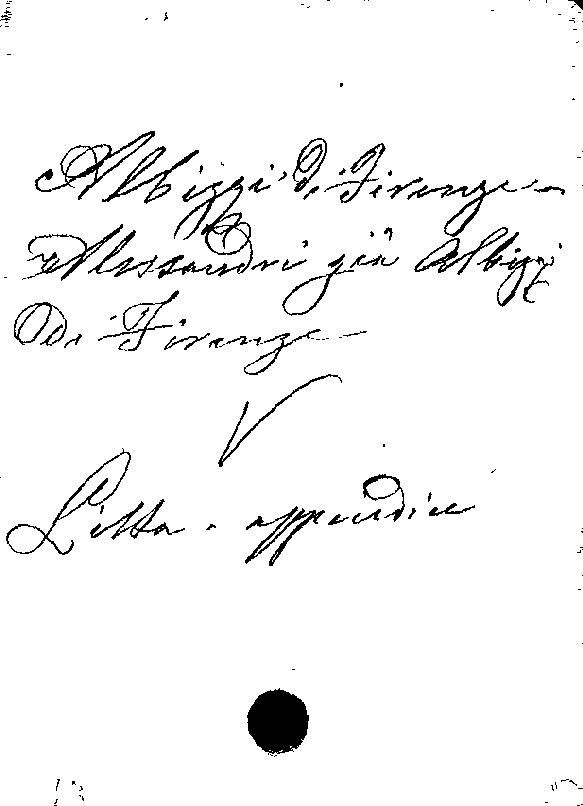 Albizzi di Firenze -
Alessandri già Albizzi
di Firenze
V
Litta - appendice